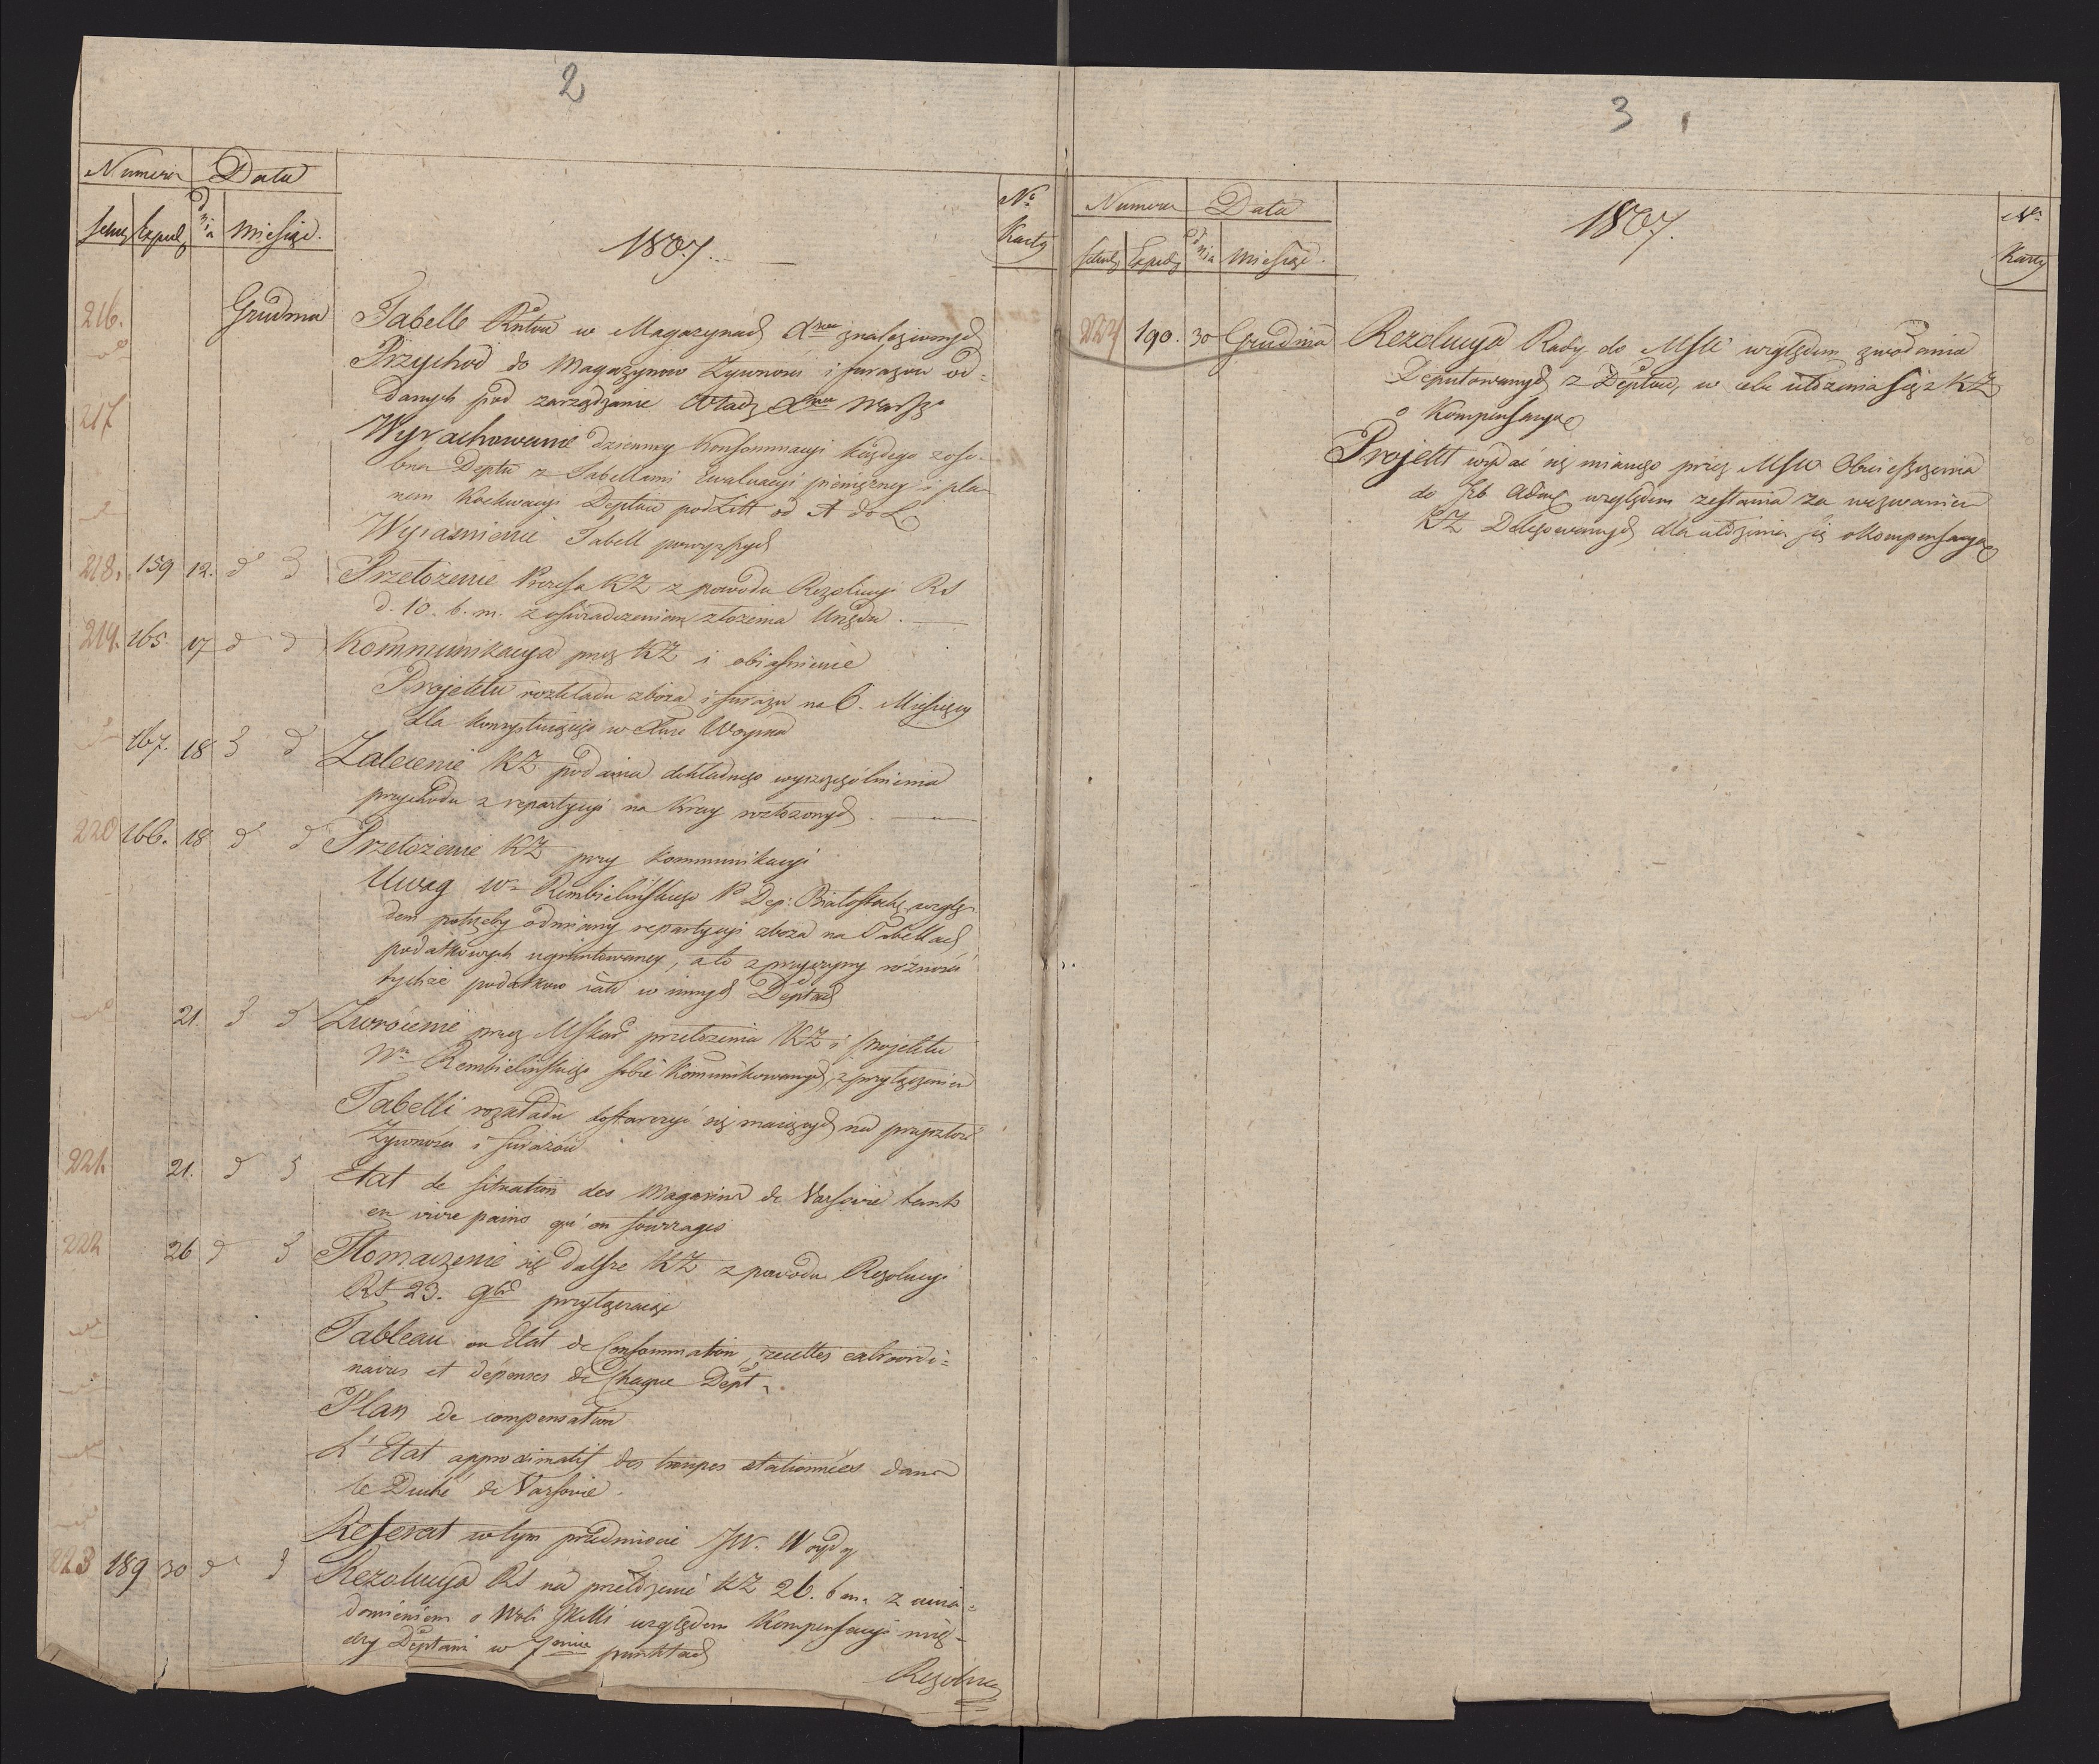 2
Numera Data
Dnia Miesiąc.
1807.
No Karty
216. Grudnia Tabelle w Magazynach znalezionych
Przychod do Magazynow Zywnosci i furazow od=
danych pod zarządzanie Warsz
217 Wyrachowanie dzienney Konsommacyi każdego zoso-
bna Deptu z Tabellami Ewaluacyi pieniężney i pla-
nem Deptow pod Litt od A do L
Wyiasnienie Tabell powyzszych
218. 159 12. d d Przełożenie Prezesa KZ z powodu Rezolucyi RS
d. 10. b. m. z oswiadczeniem złozenia Urzędu.
219. 165. 17 d d Kommunikacya przez KZ i obiasnienie
Projektu rozkładu zboza i furazu na 6. Miesięcy
dla w Woyska
167. 18 d d Zalecenie KZ podania dokładnego wyszczególnienia
przychodu z repartycyi na Kray rozłozonych
220 166. 18 d d Przełożenie KZ przy kommunikacyi
Uwag Wo Rembielinskiego P Dep: Białostock: wzglę-
dem potrzeby odmiany repartycyi zboza na Tabellach
podatkowych ugruntowaney, a to z przyczyny rożnosci
tychże podatkow w innych Deptach
21. d d Zwrócenie przez przełozenia KZ i projektu
Wo Rembielinskiego sobie Komunikowanych, z przyłączeniem
Tabelli rozkładu dostarczyć się maiących na przyszłość
Zywnosci i furazów
221. 21. d d Etat de situation des Magasins de Varsovie tant
en vivre pains qu'en fourrages
222 26 d d Tłomaczenie się dalsze KZ z powodu Rezolucyi
RS 23. 9bra przyłączaiąc
Tableau ou Etat de Consommation, recettes extraordi=
naires et dépenses de Chaque Dept.
Plan de compensation
L'Etat approximatif des troupes stationnées dans
le Duché de Varsovie.
Referat w tym przedmiocie JW. Woydy
223 189 30 d d Rezolucya RS na przełożenie KZ 26. b m. z uwia=
domieniem o Woli JKMci względem Kompensacyi mię-
dzy Deptami w 7miu punktach
Rezolucya
3
Numera Data
Dnia Miesiąc.
1807.
No Karty
224 190. 30 Grudnia Rezolucya Rady do względem zwołania
Deputowanych z Deptow, w celu ułożenia się z KZ
o Kompensacyą
Projekt wydać się mianego przez Obwieszczenia
do względem zesłania za wezwaniem
KZ Delegowanych dla ułożenia się o Kompensacyą